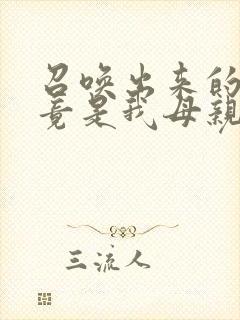 召唤出来的
竟是我母親
三流人